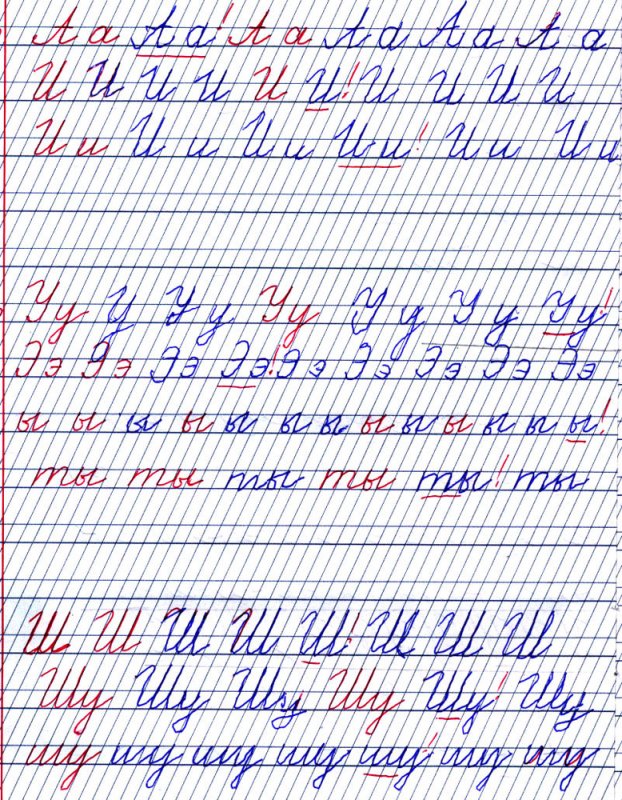 А а А а! А а А а А а А а
И И И И И И! И И И И
И и И и И и И и! И и И и
У у У У у У у У у У у У у!
Э э Э э Э э Э э! Э э Э э Э э Э э Э э
ы ы ы ы ы ы ы ы ы ы ы ы ы!
ты ты ты ты ты! ты
Ш Ш Ш Ш Ш! Ш Ш Ш
Шу Шу Шу Шу Шу! Шу
шу шу шу шу шу! шу шу